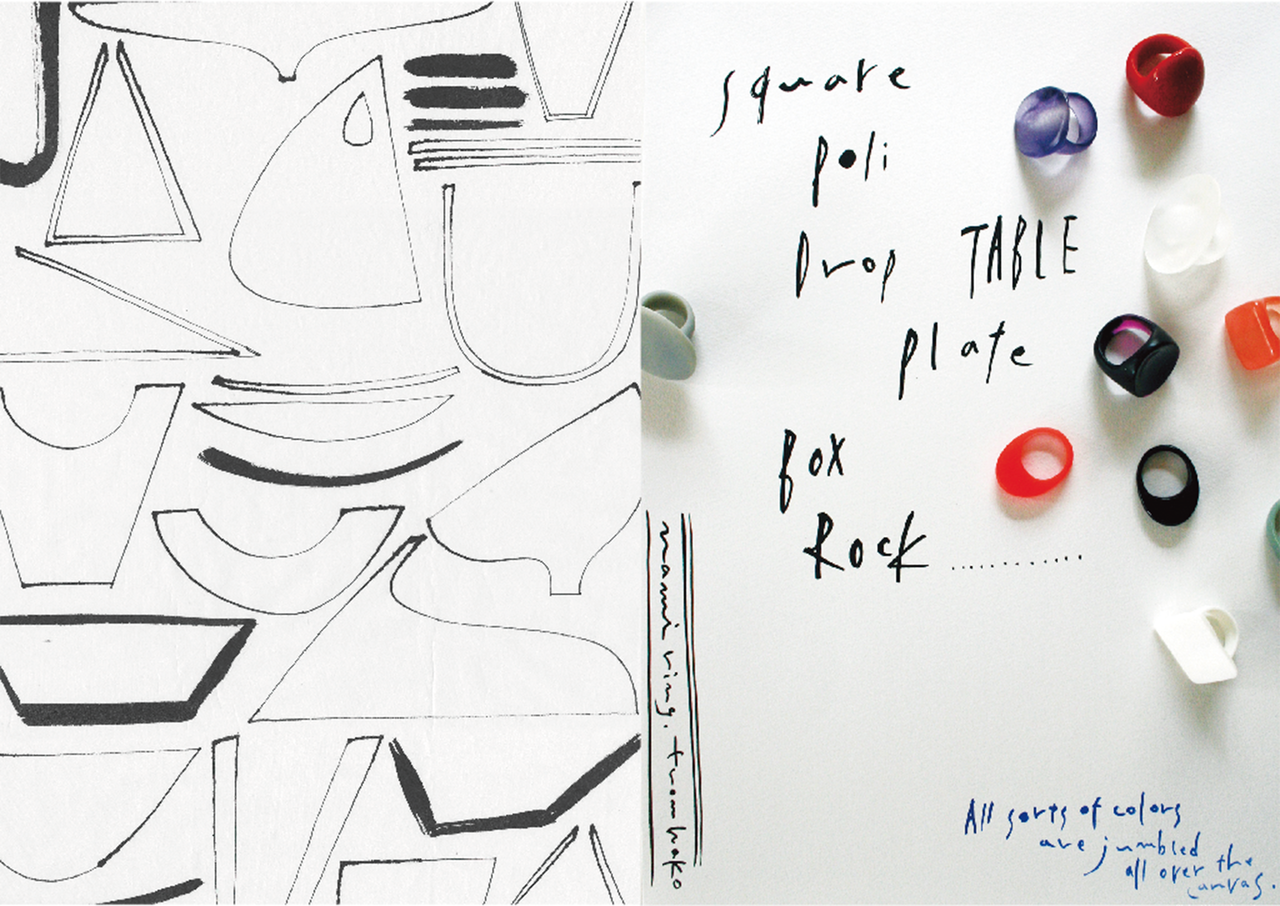 square
poli
Drop TABLE
plate
BOX
Rock ............
mami ring. trombako
All sorts of colors
are jumbled
all over the
canvas.